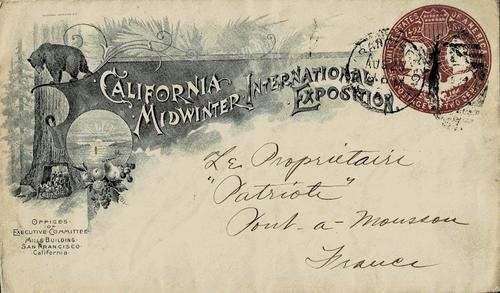 CALIFORNIA
MIDWINTER INTERNATIONAL
EXPOSITION
UNITED STATES OF AMERICA
POSTAGE TWO CENTS
Le Propriétairi
"Patriote"
Pont-a-Mousson
France
OFFICES
OF
EXECUTIVE COMMITTEE
MILLS BUILDING
SAN FRANCISCO
California